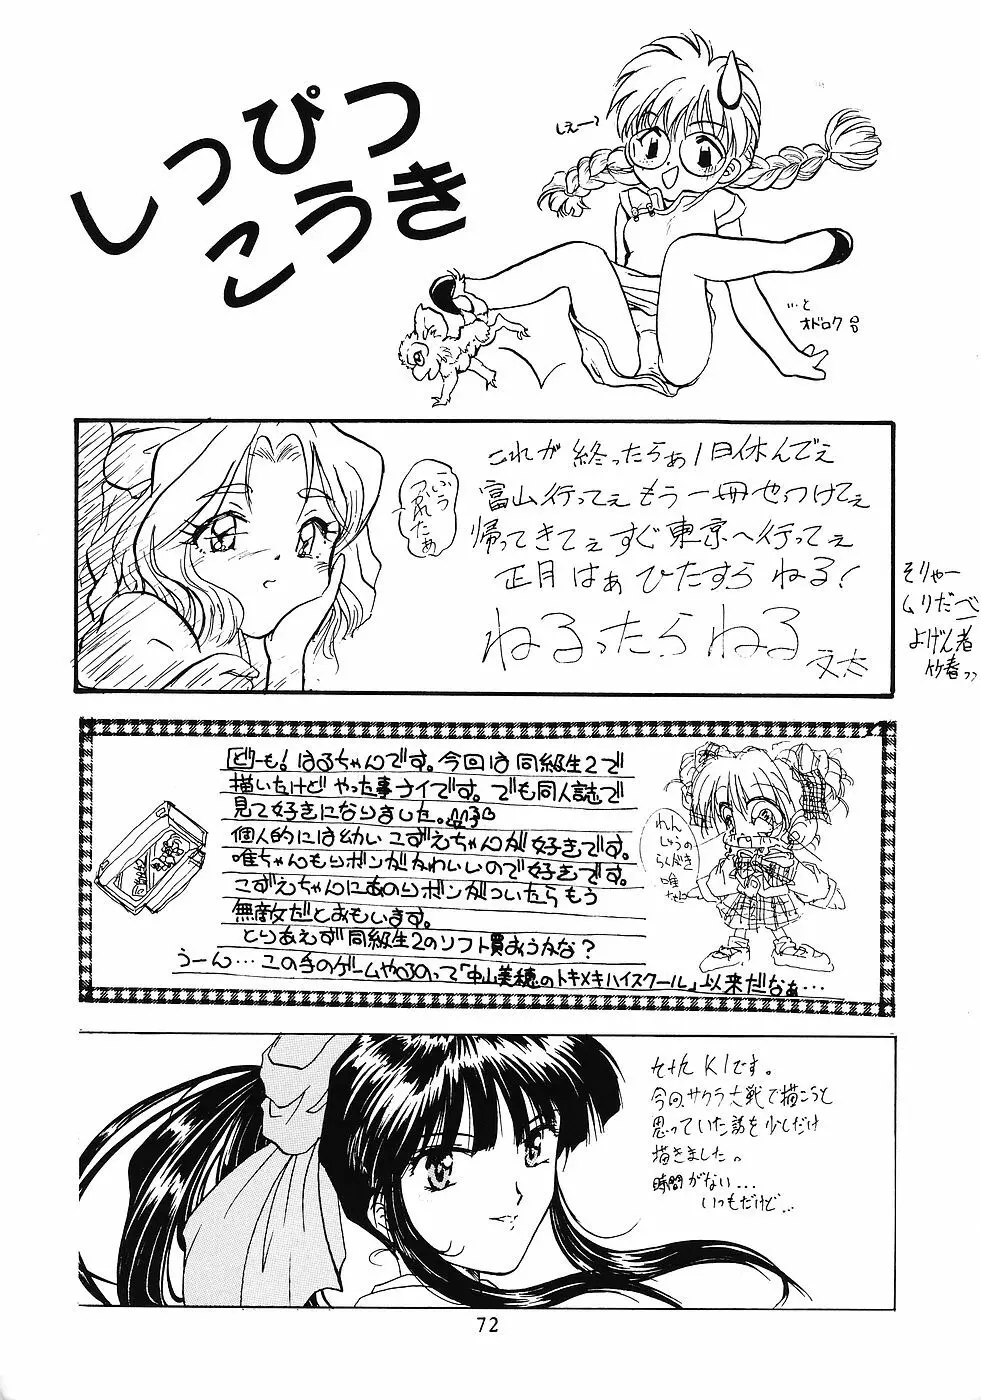 しっぴつ
こうき
しぇー？
…と
オドロク
こいつ
つかれたぁ
これが 終ったらぁ 1日休んでぇ
富山行ってぇ もう一冊せっつけてぇ
帰ってきてぇ すぐ東京へ行ってぇ
正月はぁ ひたすら ねる！
ねるったらねる
文太
そりゃー
ムリだべー
よげん者
竹春
どーも！はるちゃんです。今回は同級生2で
描いたけど やった事ナイです。でも同人誌で
見て好きになりました。
個人的には幼い こずえちゃんが好きです。
唯ちゃんもリボンがかわいいので好きです。
こずえちゃんにあのリボンがついたらもう
無敵だとおもいます。
とりあえず同級生2のソフト買おうかな？
うーん…この手のゲームやるのって「中山美穂のトキメキハイスクール」以来だなぁ…
れん
しゅうの
らくがき
唯
ちゃん
K1です。
今回、サクラ大戦で描こうと
思っていた話を少しだけ
描きました。
時間がない…
いつもだけど…
72